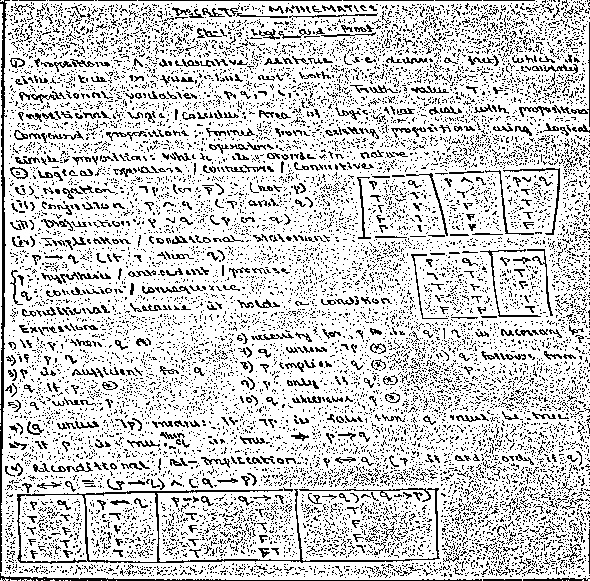 DISCRETE MATHEMATICS
Ch-1 Logic and Proof
① Proposition: A declarative sentence (i.e. declares a fact) which is
either true or false, but not both.
Propositional variables: p, q, r, s, Truth value: T, F
Propositional logic / calculus: Area of logic that deals with propositions
Compound propositions: Formed from existing propositions using logical
operators.
Simple proposition: Which is atomic in nature.
② Logical operators / connectors / connectives:
(i) Negation ¬p (or p̅) (not p)
(ii) Conjunction p ∧ q (p and q)
(iii) Disjunction p ∨ q (p or q)
p q p ∧ q p ∨ q
T T T T
T F F T
F T F T
F F F F
(iv) Implication / conditional statement:
p → q (if p then q)
p: hypothesis / antecedent / premise
q: conclusion / consequence
conditional because it holds a condition
p q p → q
T T T
T F F
F T T
F F T
Expressions
1) If p, then q
2) if p, q
3) p is sufficient for q
4) q if p
5) q when p
6) necessity for p is q / q is necessary for p
7) q unless ¬p
8) p implies q
9) p only if q
10) q whenever p
11) q follows from
*) (q unless ¬p) means: If ¬p is false then q must be true
⇒ If p is true then q is true ⇒ p → q
(v) Biconditional / Bi-Implication: p ↔ q (p if and only if q)
p ↔ q ≡ (p → q) ∧ (q → p)
p q p ↔ q p → q q → p (p → q) ∧ (q → p)
T T T T T T
T F F F T F
F T F T F F
F F T T T T